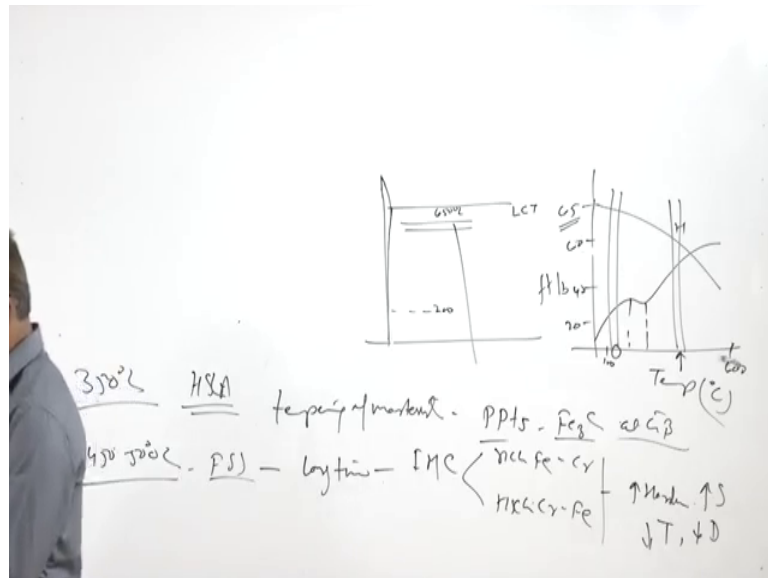 650°C LCT
200
65
60
ft lb 40
20
100 600
Temp (°C)
350°C HSLA tempering of martensit - PPts. Fe3C at GB
450-500°C - FSS - long time - IMC
rich Fe-Cr
rich Cr-Fe
↑Harden ↑S
↓T, ↓D